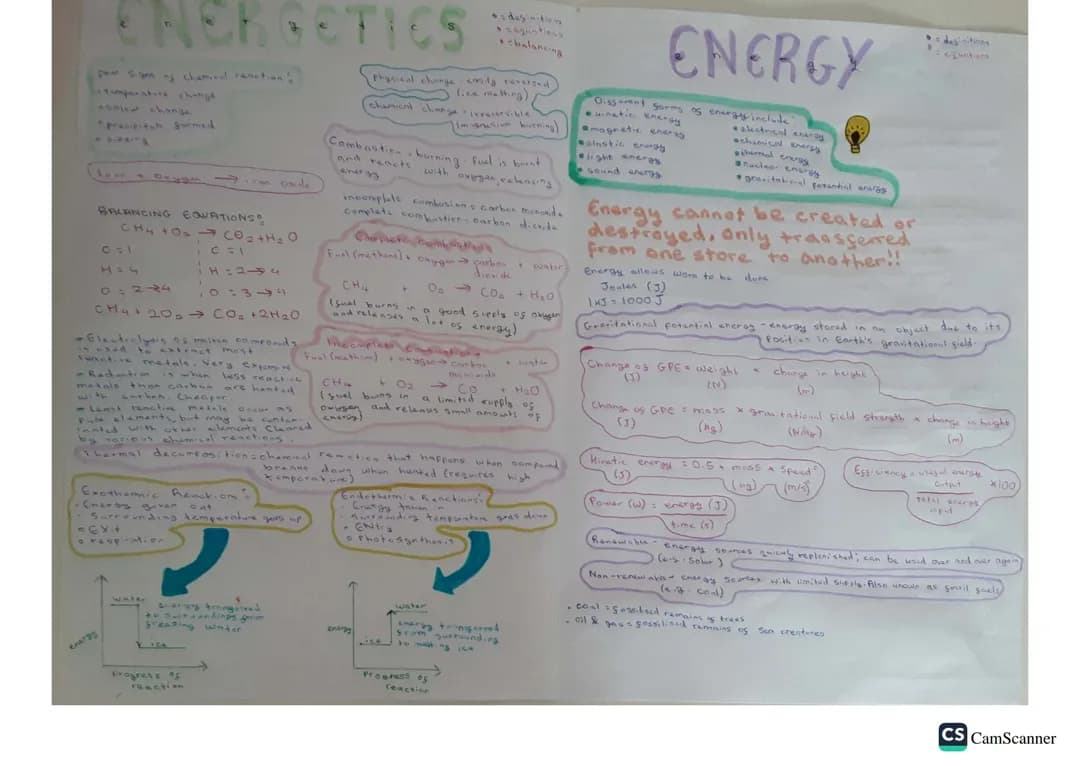 ENERGETICS
energetics
= definition
= equations
= balancing
Four signs of chemical reaction:
temperature change
colour change
precipitate formed
Iron + Oxygen → iron oxide
BALANCING EQUATIONS:
CH4 + O2 → CO2 + H2O
C = 1 C = 1
H = 4 H = 2 → 4
O = 2 → 4 O = 3 → 4
CH4 + 2O2 → CO2 + 2H2O
Electrolysis of molten compounds
is used to extract most
reactive metals. Very expensive
Reduction is when less reactive
metals than carbon are heated
with carbon. Cheaper.
Least reactive metals occur as
pure elements, but may be contam-
inated with other elements. Cleaned
by various chemical reactions.
Physical change - easily reversed
(ice melting)
chemical change - irreversible
(magnesium burning)
Combustion = burning. Fuel is burnt
and reacts with oxygen, releasing
energy
incomplete combustion = carbon monoxide
complete combustion = carbon dioxide
Complete Combustion
Fuel (methane) + oxygen → carbon dioxide + water
CH4 + O2 → CO2 + H2O
(fuel burns in a good supply of oxygen
and releases a lot of energy)
Incomplete Combustion
Fuel (methane) + oxygen → carbon monoxide + water
CH4 + O2 → CO + H2O
(fuel burns in a limited supply of
oxygen and releases small amounts of
energy)
Thermal decomposition = chemical reaction that happens when compound
breaks down when heated (requires high
temperature)
Exothermic Reaction:
Energy given out
Surrounding temperature goes up
EXit
respiration
Endothermic Reactions:
Energy taken in
Surrounding temperature goes down
ENtry
Photosynthesis
water
energy transferred
to surroundings from
freezing water
ice
energy
Progress of
reaction
water
energy transferred
from surrounding
to melting ice
ice
energy
Progress of
reaction
ENERGY
energy
= definitions
= equations
Different forms of energy include:
kinetic energy
magnetic energy
elastic energy
light energy
sound energy
electrical energy
chemical energy
thermal energy
nuclear energy
gravitational potential energy
Energy cannot be created or
destroyed, only transferred
from one store to another!!
Energy allows work to be done
Joules (J)
1KJ = 1000 J
Gravitational potential energy - energy stored in an object due to its
position in Earth's gravitational field.
Change of GPE = weight × change in height
(J) (N) (m)
Change of GPE = mass × gravitational field strength × change in height
(J) (kg) (N/kg) (m)
Kinetic energy = 0.5 × mass × speed²
(J) (kg) (m/s)
Efficiency = useful energy output ×100
total energy input
Power (W) = energy (J)
time (s)
Renewable - energy sources quickly replenished; can be used over and over again
(e.g. solar)
Non-renewable - energy sources with limited supply. Also known as fossil fuels
(e.g. coal)
coal = fossilised remains of trees
oil & gas = fossilised remains of sea creatures
CS CamScanner